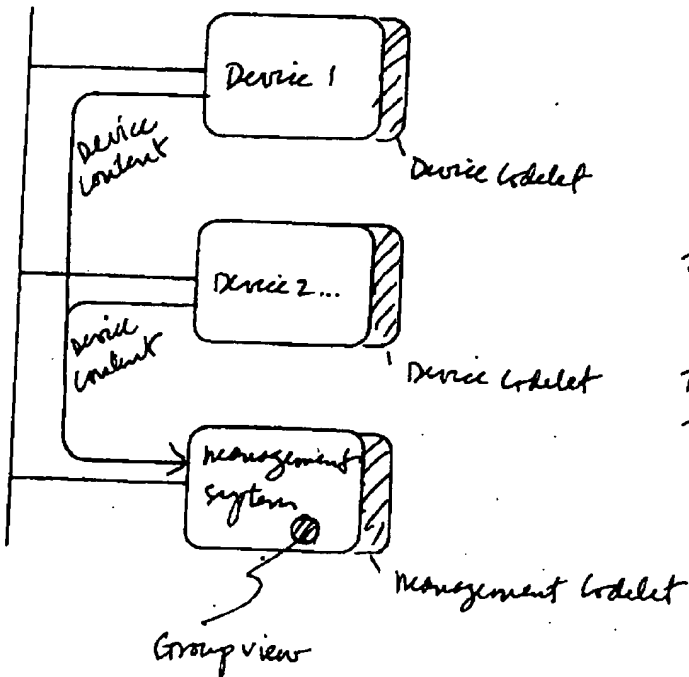 Device 1
Device
Content
Device Codelet
Device 2...
Device
Content
Device Codelet
Management
System
Management Codelet
Group view